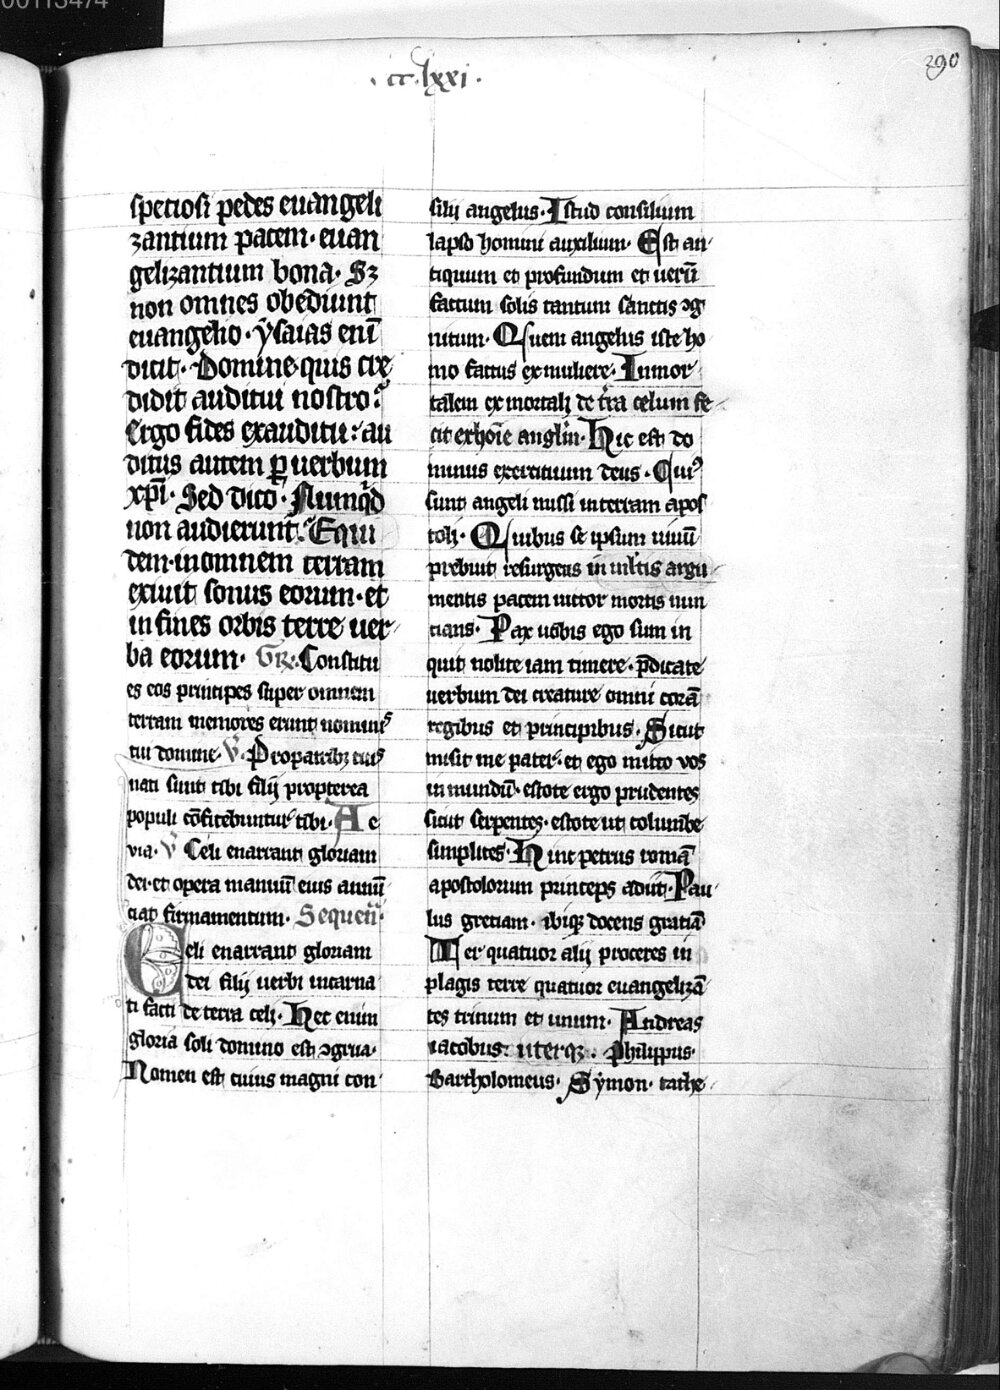 00113474
·cclxxi·
290
speciosi pedes euangeli
zantium pacem· euan
gelizantium bona· Sz
non omnes obediunt
euangelio· ẏsaias eni̅
dicit· Domine quis cre
didit auditui nostro?
Ergo fides exauditu: au
ditus autem ꝑ uerbum
xp̅i· Sed dico· Nunqͥd
non audierunt? Equi
dem· in omnem terram
exiuit sonus eorum· et
in fines orbis terre uer
ba eorum· GR̃: Constitu
es eos principes super omnem
terram memores erunt nominis
tui domine· V̓· Pro patribꝫ tuis
nati sunt tibi filij propterea
populi co̅fitebuntur tibi· Ae
via· V̓ Celi enarrant gloriam
dei· et opera manuu̅ eius annu̅
ciat firmamentum· Sequen̅·
Celi enarrant gloriam
dei filij uerbi incarna
ti facti de terra celi· Hec enim
gloria soli domino est ꝯgrua·
Nomen est cuius magni con
silij angelus· Istud consilium
lapso homini auxilium· Est an
tiquum et profundum et ueru̅
factum solis tantum sanctis ꝯg
nitum· Quem angelus iste ho
mo factus ex muliere· Inmor
talem ex mortali de tr̅a celum fe
cit ex ho̅ie angl̅m· Hic est do
minus exercituum deus· Cuiꝰ
sunt angeli missi in terram apos
toli· Quibus se ipsum uiuu̅
prebuit resurgens in ml̅tis argu
mentis pacem uictor mortis nun
cians· Pax uobis ego sum in
quit nolite iam timere· p̅dicate
uerbum dei creature omni cora̅
regibus et principibus· Sicut
misit me pater· et ego mitto vos
in mundu̅· estote ergo prudentes
sicut serpentes· estote ut columbe
simplices· Hinc petrus roma̅
apostolorum princeps adijt· Pau
lus greciam· ibiqꝫ docens gratia̅
Ter quatuor alij proceres in
plagis terre quatuor euangeliza̅
tes trinum et unum· Andreas
iacobus: uterqꝫ· Philippus·
Bartholomeus· Sẏmon· tathe